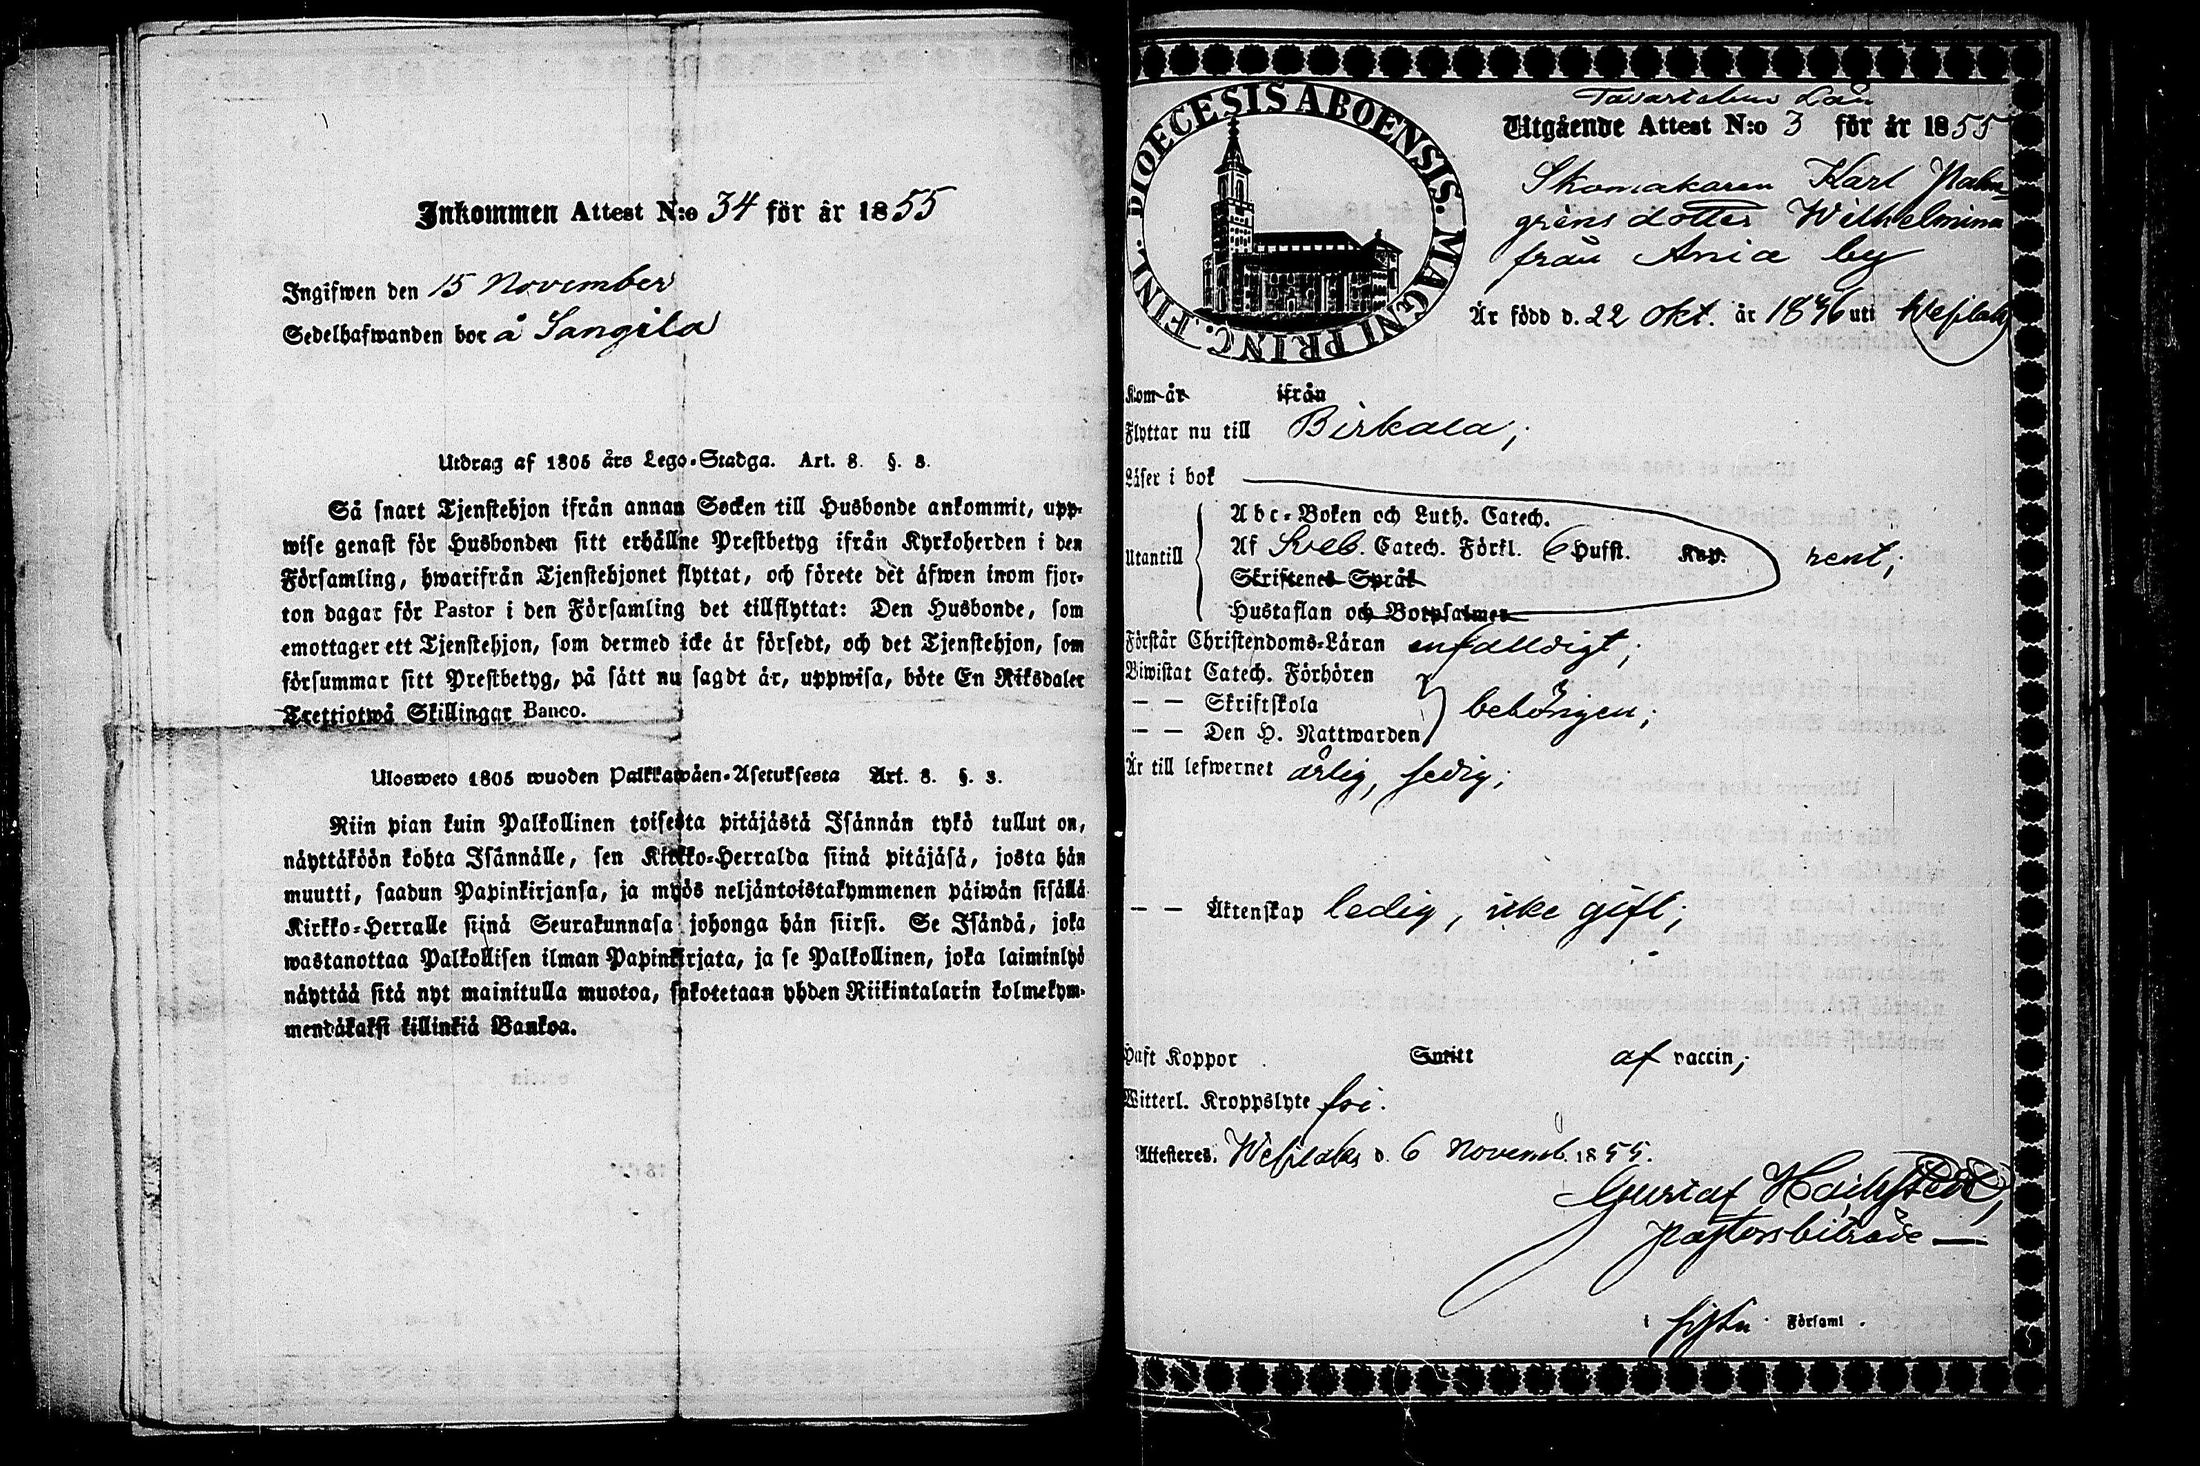 Inkommen Attest N:o 34 för år 1855
Ingifwen den 15 November
Sedelhafwanden bor å Sangila
Utdrag af 1805 års Lego-Stadga. Art. 8. §. 3.
Så snart Tjenstehjon ifrån annan Socken till Husbonde ankommit, upp-
wise genast för Husbonden sitt erhållne Prestbetyg ifrån Kyrkoherden i den
Församling, hwarifrån Tjenstehjonet flyttat, och förete det äfwen inom fjor-
ton dagar för Pastor i den Församling det tillflyttat: Den Husbonde, som
emottager ett Tjenstehjon, som dermed icke är försedt, och det Tjenstehjon, som
försummar sitt Prestbetyg, på sätt nu sagdt är, uppwisa, böte En Riksdaler
Trettiotwå Skillingar Banco.
Ulosweto 1805 wuoden Palkkawäen-Asetuksesta Art. 8. §. 3.
Niin pian kuin Palkollinen toisesta pitäjästä Isännän tykö tullut on,
näyttäköön kohta Isännälle, sen Kirkko-Herralda siinä pitäjäsä, josta hän
muutti, saadun Papinkirjansa, ja myös neljäntoistakymmenen päiwän sisällä
Kirkko-Herralle siinä Seurakunnasa johonga hän siirsi. Se Isändä, joka
wastanottaa Palkollisen ilman Papinkirjata, ja se Palkollinen, joka laiminlyö
näyttää sitä nyt mainitulla muotoa, sakotetaan yhden Riikintalarin kolmekym-
mendäkaksi killinkiä Bankoa.
DIOECESIS ABOENSIS. MAGNI PRINC. FINL.
Tavastehus Län
Utgående Attest N:o 3 för år 1855
Skomakaren Karl Malm-
gréns dotter Wilhelmina
från Ania by
Är född d. 22 Okt. år 1836 uti Wesilaks
Kom år ifrån
Flyttar nu till Birkala;
Läser i bok
Abc-Boken och Luth. Catech.
Utantill Af Sveb. Catech. Förkl. 6 Hufst. Kap. rent;
Skriftenes Språk
Hustaflan och Botpsalmer
Förstår Christendoms-Läran enfalldigt;
Biwistat Catech. Förhören
— — Skriftskola behörigen;
— — Den H. Nattwarden
Är till lefwernet ärlig, sedig;
— — Äktenskap ledig, icke gift;
Haft Koppor Smitt af vaccin;
Witterl. Kroppslyte fri.
Attesteres. Wesilaks d. 6 Novemb. 1855.
Gustaf
Pastorsbiträde —
i Församl.